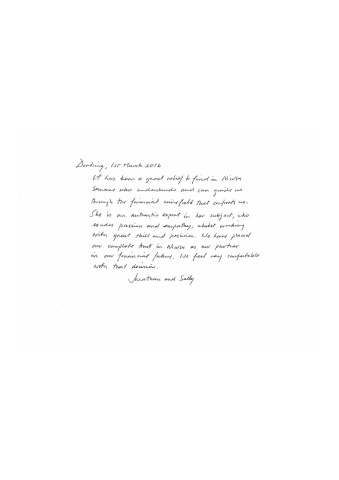 Dorking, 1st March 2016
It has been a great relief to find in
someone who understands and can guide us
through the financial minefield that confronts us.
She is an authentic expert in her subject, who
exudes passion and empathy, whilst working
with great skill and precision. We have placed
our complete trust in as our partner
in our financial future. We feel very comfortable
with that decision.
Jonathan and Sally